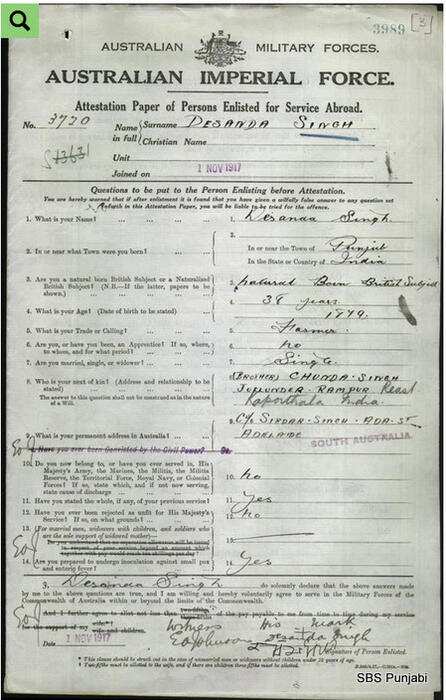 3989 [3]
AUSTRALIAN MILITARY FORCES.
AUSTRALIAN IMPERIAL FORCE.
Attestation Paper of Persons Enlisted for Service Abroad.
No. 3720 Name in full Surname DESANDA SINGH
Christian Name
Unit
Joined on 1 NOV 1917
Questions to be put to the Person Enlisting before Attestation.
You are hereby warned that if after enlistment it is found that you have given a wilfully false answer to any question set forth in this Attestation Paper, you will be liable to be tried for the offence.
1. What is your Name? ... 1. Desanda Singh
2. In or near what Town were you born? ... 2. In or near the Town of Punjab
In the State or Country of India
3. Are you a natural born British Subject or a Naturalised British Subject? (N.B.—If the latter, papers to be shown.) 3. Natural Born British Subject
4. What is your Age? (Date of birth to be stated) 4. 38 years
1879.
5. What is your Trade or Calling? 5. Farmer
6. Are you, or have you been, an Apprentice? If so, where, to whom, and for what period? 6. No
7. Are you married, single, or widower? 7. Single
8. Who is your next of kin? (Address and relationship to be stated) 8. (BROTHER) CHUNDA SINGH
RAMPUR
Kaporthala India.
The answer to this question shall not be construed as in the nature of a Will.
9. What is your permanent address in Australia? 9. C/o SIRDAR SINGH - ADA ST
ADELAIDE SOUTH AUSTRALIA
Have you ever been Convicted by the Civil Power?
10. Do you now belong to, or have you ever served in, His Majesty's Army, the Marines, the Militia, the Militia Reserve, the Territorial Force, Royal Navy, or Colonial Forces? If so, state which, and if not now serving, state cause of discharge 10. No
11. Have you stated the whole, if any, of your previous service? 11. Yes
12. Have you ever been rejected as unfit for His Majesty's Service? If so, on what grounds? 12. No
13. (For married men, widowers with children, and soldiers who are the sole support of widowed mother)— 13.
Do you understand that no separation allowance will be issued in respect of your service beyond an amount which together with pay would reach ten shillings per day?
14. Are you prepared to undergo inoculation against small pox and enteric fever? 14. Yes
I, Desanda Singh do solemnly declare that the above answers made by me to the above questions are true, and I am willing and hereby voluntarily agree to serve in the Military Forces of the Commonwealth of Australia within or beyond the limits of the Commonwealth.
And I further agree to allot not less than of the pay payable to me from time to time during my service for the support of my wife and children.
Witness his mark
Date 1 NOV 1917 Desanda Singh
Signature of Person Enlisted.
* This clause should be struck out in the case of unmarried men or widowers without children under 18 years of age.
† Two-fifths must be allotted to the wife, and if there are children three-fifths must be allotted.
SBS Punjabi